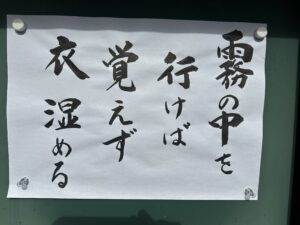 霧の中を
行けば
覚えず
衣湿める